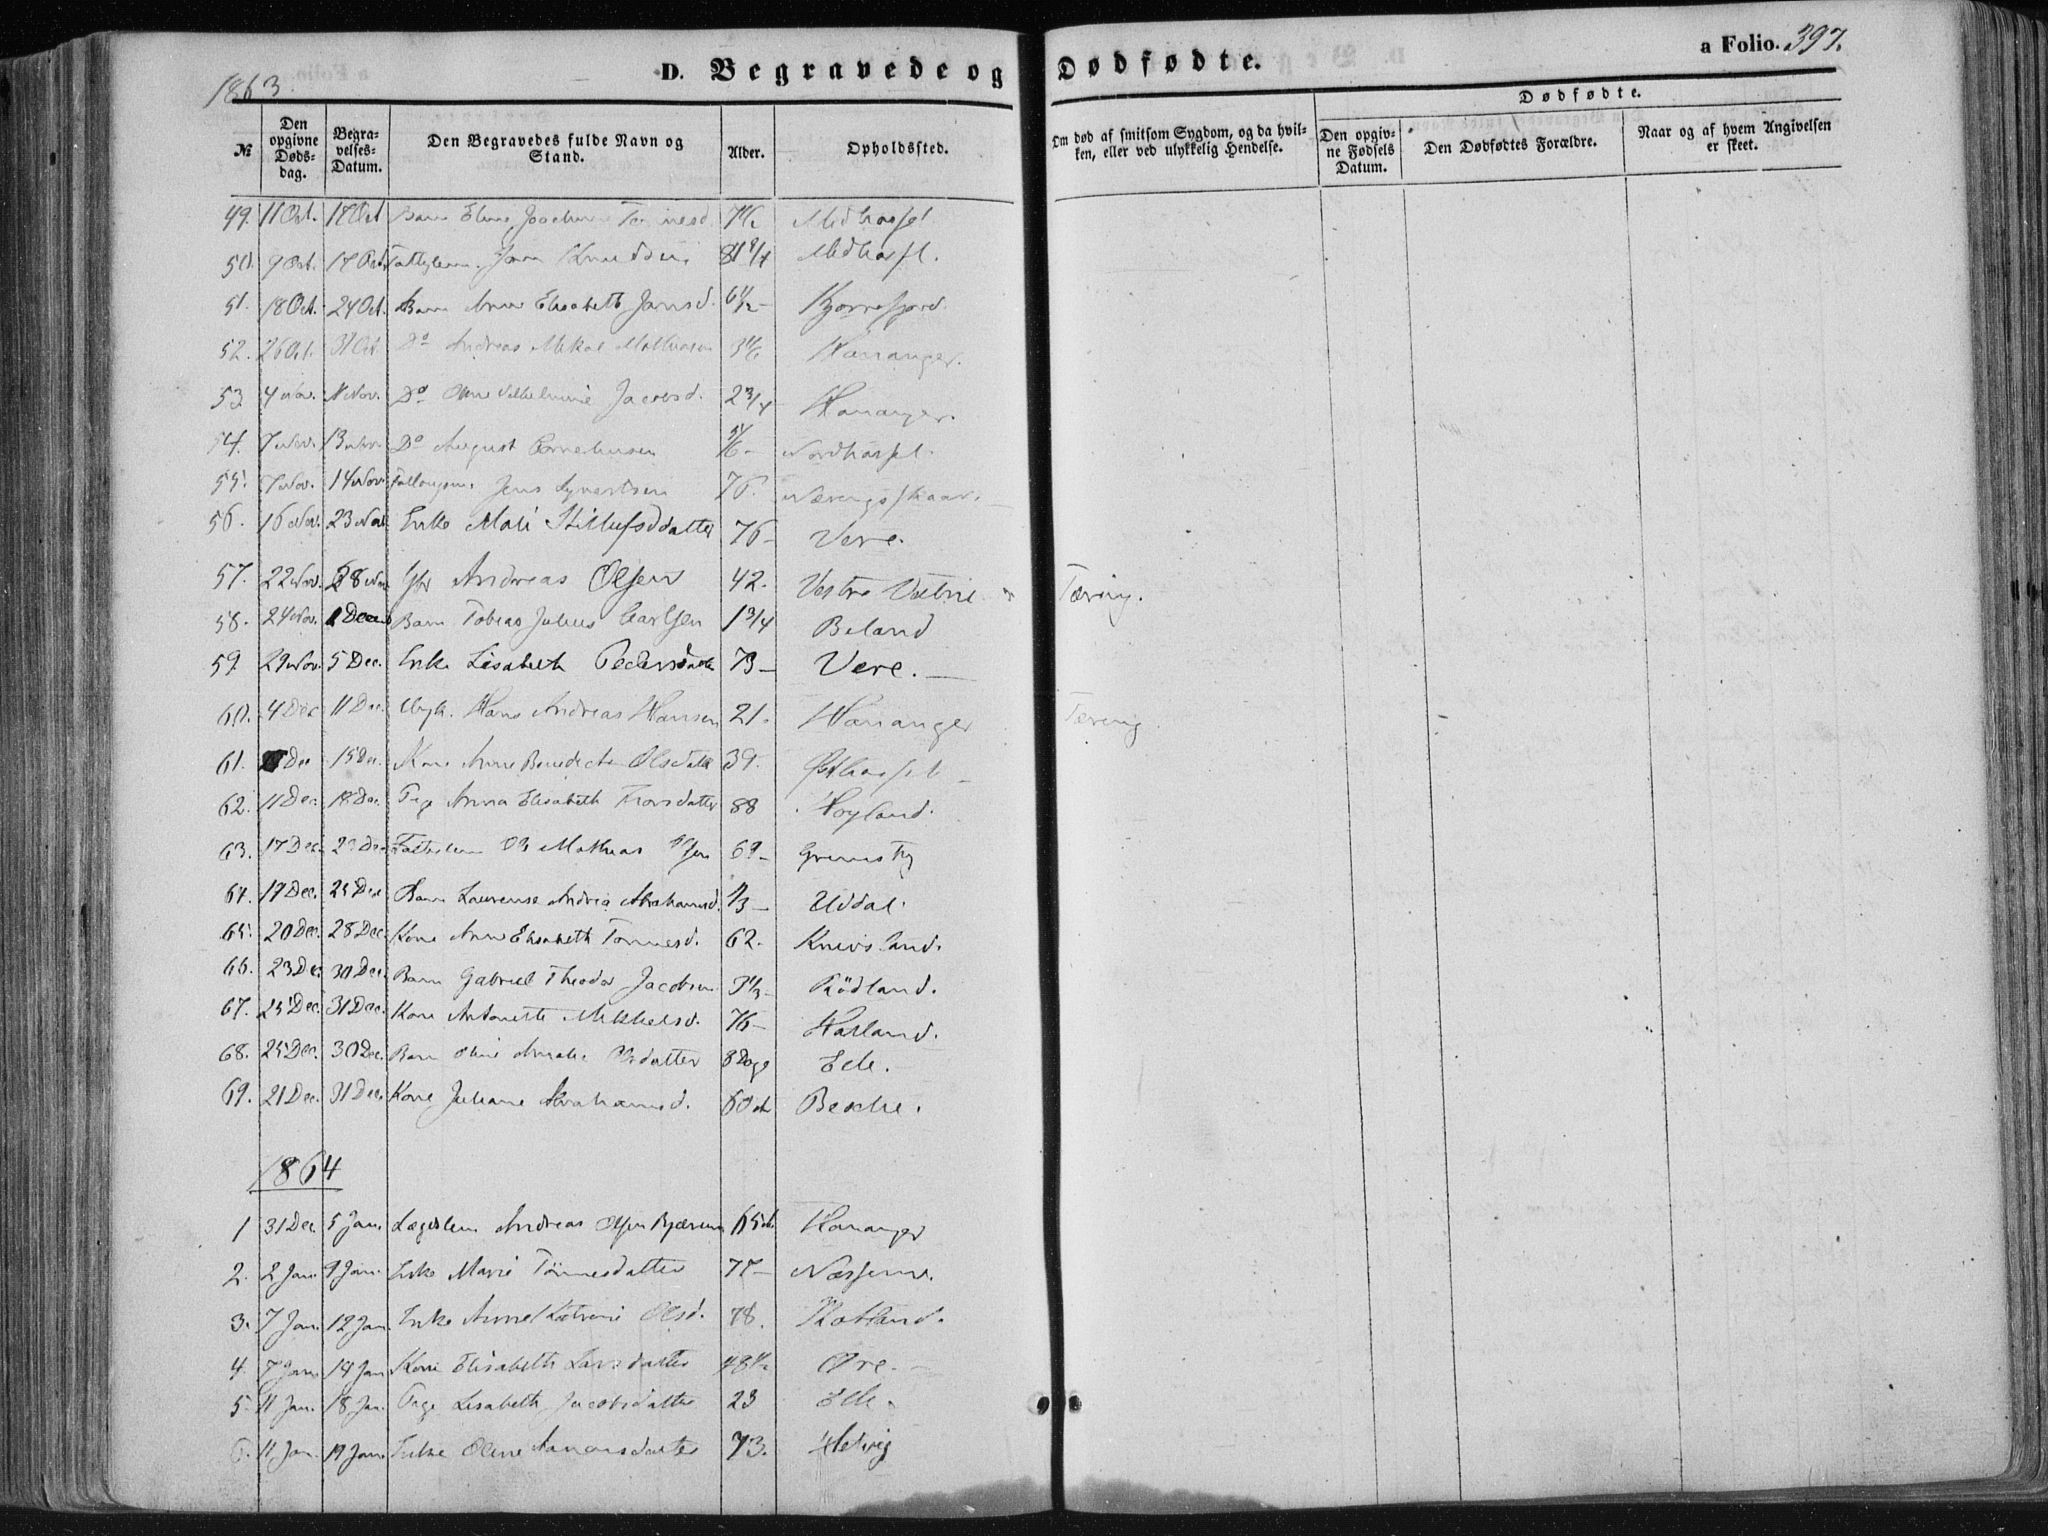 1863
D. Begravede og Dødfødte.
a Folio. 397.
№ Den opgivne Døds-dag. Begra-velses-Datum. Den Begravedes fulde Navn og Stand. Alder. Opholdssted. Om død af smitsom Sygdom, og da hvil-ken, eller ved ulykkelig Hendelse. Dødfødte. Den opgiv-ne Fødsels Datum. Den Dødfødtes Forældre. Naar og af hvem Angivelsen er skeet.
49. 11 Oct. 18 Oct Barn Elene Jochumine Tønnesd Midhassel
50. 9 Oct. 17 Oct. Jann Knudsen 81 3/4 Midhassl.
51. 18 Oct. 24 Oct. Barn Anne Elisabeth Jansd. 6 1/2 - Kjørrefjord.
52. 26 Oct. 31 Oct Do Andreas Mikal Mathiasen Hananger.
53 4 Nov. 11 Nov. Do Vilhelmine Jacobsd. 2 3/4 Hananger.
54. 7 Nov. 13 Nov. Do August Cornelius​en 5/6 - Nordhassel.
55. 7 Nov. 14 Nov Jens Syvertsen 76. Næringsskaar.
56. 16 Nov. 23 Nov Enke Mali datter 76 - Vere.
57. 22 Nov. 28 Nov Andreas Olsen 42. Vestre Vatne Tæring.
58. 24 Nov. 1 Dec Barn Tobias Julius Carlsen 1 3/4 Beland
59. 29 Nov. 5 Dec. Enke Lisabeth Pedersdatter 73 - Vere.
60. 4 Dec 11 Dec. Ungk. Hans Andreas Hansen 21. Hananger Tæring
61. Dec 15 Dec. Kone Anne Benedicte Olsdatter 39. Østhassel
62. 11 Dec. 18 Dec. Pige Anna Elisabeth datter 88 Høyland.
63. 17 Dec. 23 Dec Fattiglem Ole Mathias Olsen 69 - Grimsby
64. 19 Dec. 25 Dec Barn Laurense Andrea Abrahamsd. 1/3 - Uddal
65. 20 Dec. 28 Dec. Kone Anne Elisabeth Tønnesd. 62. Knivsland.
66. 23 Dec 30 Dec. Barn Gabriel Theodor Jacobsen 3 1/3 - Rödland.
67. 25 Dec. 31 Dec. Kone Antonette Mikkelsd. 76 - Hauland.
68. 25 Dec. 30 Dec. Barn Oline Amalie Olsdatter 8 Dage Eck.
69. 21 Dec. 31 Dec. Kone Juliane Abrahamsd. 60 Besche.
1864
1 31 Dec 5 Jan. Lægdslem Andreas Olsen Bjærum 65 Hananger
2. 2 Jan 9 Jan. Enke Marie Tönnesdatter 77 -
3. 7 Jan. 12 Jan. Enke Anne Katrine Olsd. 78.
4. 7 Jan 14 Jan Kone Elisabeth Larsdatter 48 1/2 Øre.
5 11 Jan. 18 Jan. Pige Lisabeth Jacobsdatter 23 Eck.
6. 11 Jan. 19 Jan. Enke Oline Aanonsdatter 73. Helvig